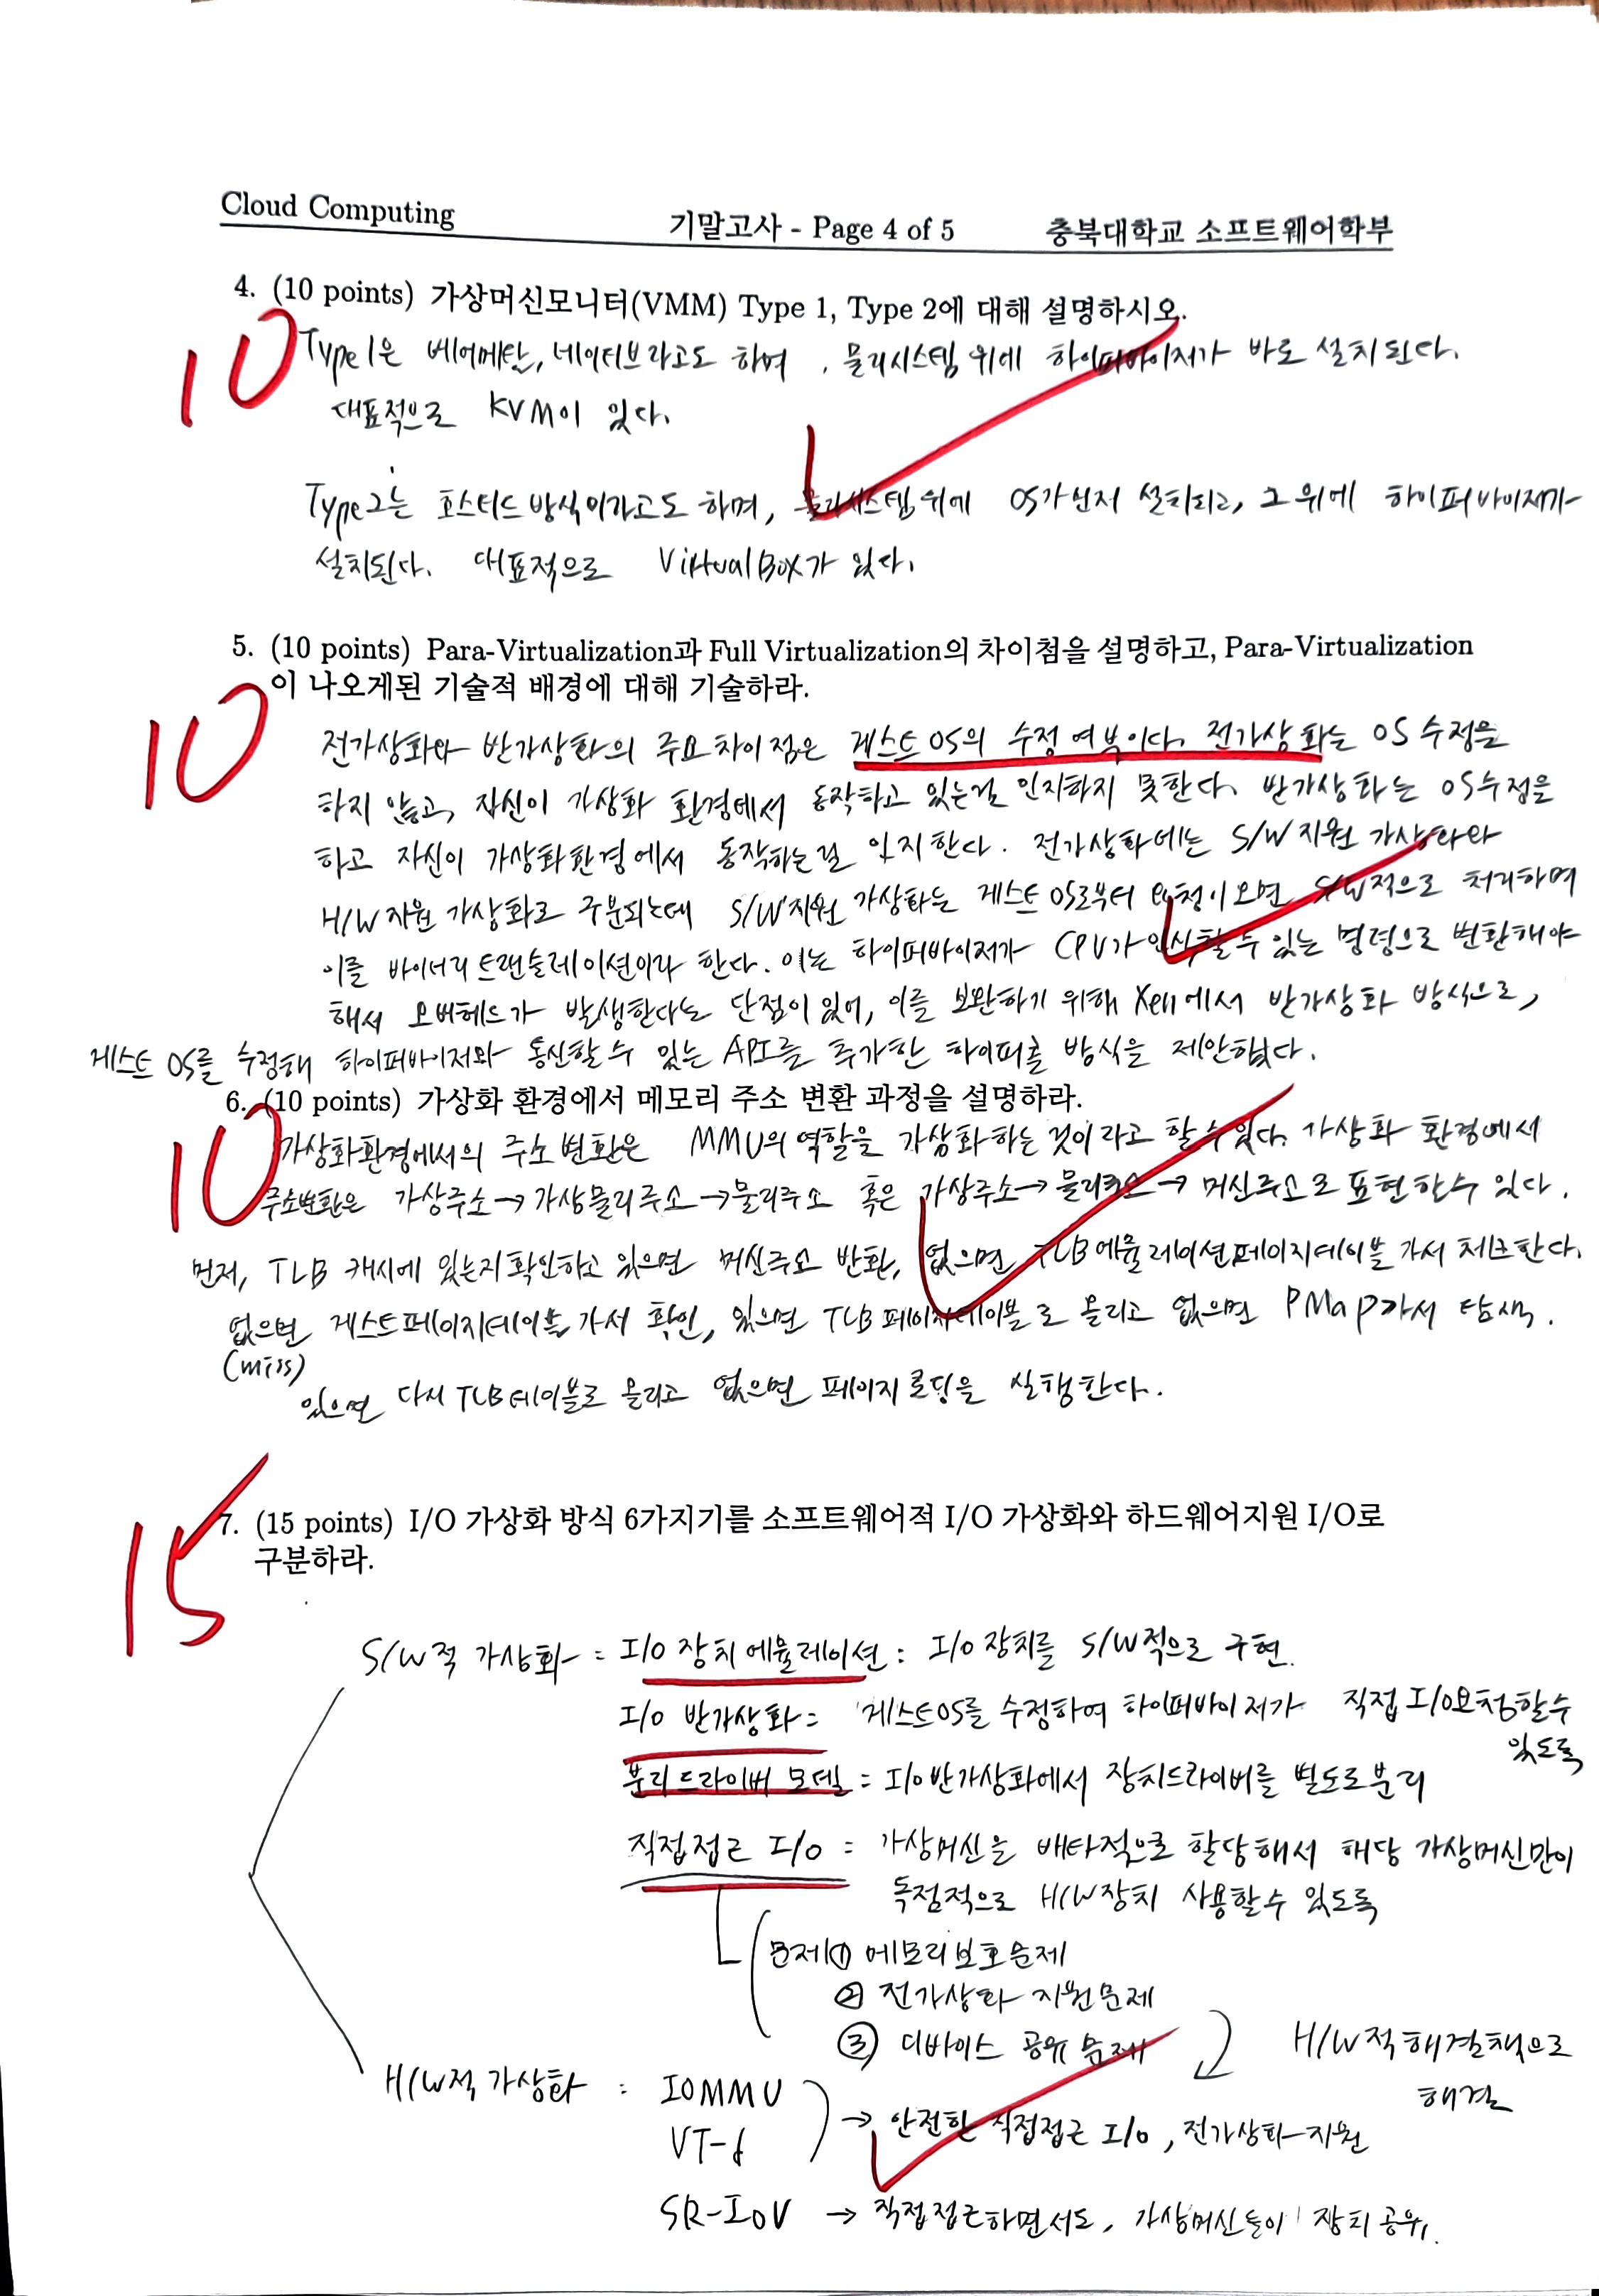 Cloud Computing 기말고사 - Page 4 of 5 충북대학교 소프트웨어학부
4. (10 points) 가상머신모니터(VMM) Type 1, Type 2에 대해 설명하시오.
10
Type 1은 베어메탈, 네이티브라고도 하며, 물리시스템 위에 하이퍼바이저가 바로 설치된다.
대표적으로 KVM이 있다.
Type 2는 호스티드 방식이라고도 하며, 물리시스템 위에 OS가 먼저 설치되고, 그 위에 하이퍼바이저가
설치된다. 대표적으로 VirtualBox가 있다.
5. (10 points) Para-Virtualization과 Full Virtualization의 차이첨을 설명하고, Para-Virtualization
이 나오게된 기술적 배경에 대해 기술하라.
10
전가상화와 반가상화의 주요차이점은 게스트OS의 수정여부이다. 전가상화는 OS 수정을
하지 않고, 자신이 가상화 환경에서 동작하고 있는걸 인지하지 못한다. 반가상화는 OS수정을
하고 자신이 가상화환경에서 동작하는걸 인지한다. 전가상화에는 S/W지원 가상화와
H/W지원 가상화로 구분되는데 S/W지원 가상화는 게스트OS로부터 요청이오면 S/W적으로 처리하며
이를 바이너리 트랜슬레이션이라 한다. 이는 하이퍼바이저가 CPU가 인식할수 있는 명령으로 변환해야
해서 오버헤드가 발생한다는 단점이 있어, 이를 보완하기 위해 Xen에서 반가상화 방식으로,
게스트 OS를 수정해 하이퍼바이저와 통신할수 있는 API를 추가한 하이퍼콜 방식을 제안했다.
6. (10 points) 가상화 환경에서 메모리 주소 변환 과정을 설명하라.
10
가상화환경에서의 주소변환은 MMU의 역할을 가상화하는 것이라고 할수있다. 가상화 환경에서
주소변환은 가상주소→가상물리주소→물리주소 혹은 가상주소→물리주소→머신주소로 표현할수 있다.
먼저, TLB 캐시에 있는지 확인하고 있으면 머신주소 반환, 없으면 TLB에뮬레이션페이지테이블 가서 체크한다.
없으면 게스트페이지테이블 가서 확인, 있으면 TLB페이지테이블로 올리고 없으면 PMap가서 탐색.
(miss)
있으면 다시 TLB테이블로 올리고 없으면 페이지 로딩을 실행한다.
7. (15 points) I/O 가상화 방식 6가지기를 소프트웨어적 I/O 가상화와 하드웨어지원 I/O로
구분하라.
15
S/W적 가상화 = I/O 장치 에뮬레이션 : I/O 장치를 S/W적으로 구현.
I/O 반가상화 = 게스트OS를 수정하여 하이퍼바이저가 직접 I/O요청할수
있도록
분리 드라이버 모델 = I/O반가상화에서 장치드라이버를 별도로분리
직접접근 I/O = 가상머신을 배타적으로 할당해서 해당 가상머신만이
독점적으로 H/W장치 사용할수 있도록
문제 ① 메모리보호문제
② 전가상화 지원문제
③ 디바이스 공유 문제
H/W적해결책으로
해결
H/W적 가상화 : IOMMU
VT-d
→ 안전한 직접접근 I/O, 전가상화지원
SR-IOV → 직접접근하면서도, 가상머신들이 장치 공유.